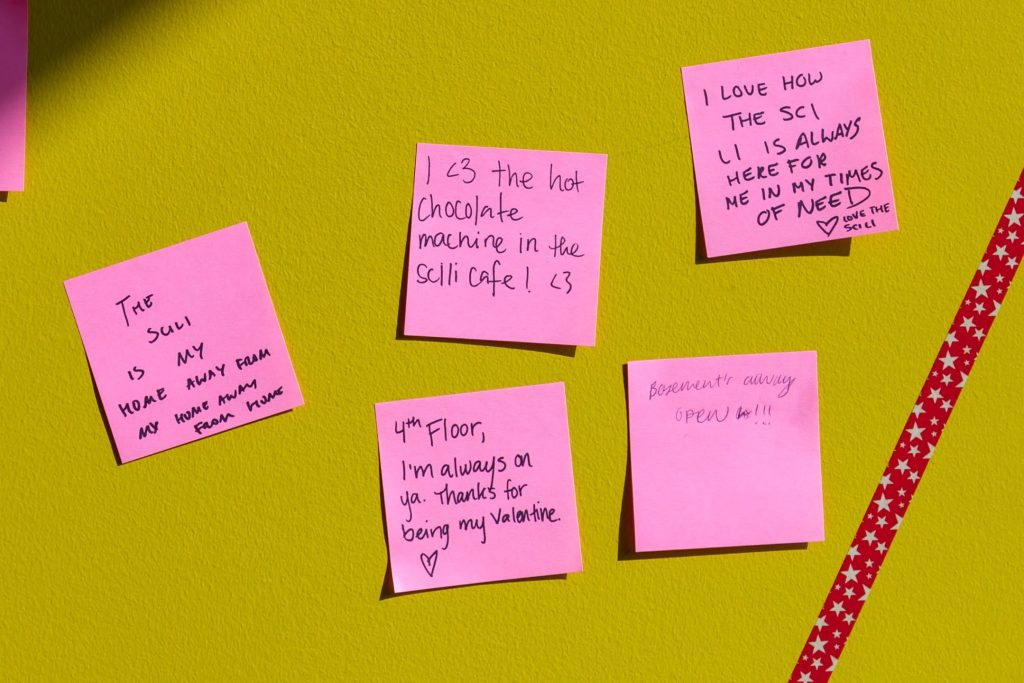 THE
SCILI
IS MY
HOME AWAY FROM
MY HOME AWAY
FROM HOME
I <3 the hot
Chocolate
machine in the
scili cafe! <3
I LOVE HOW
THE SCI
LI IS ALWAYS
HERE FOR
ME IN MY TIMES
OF NEED
♡ LOVE THE
SCILI
4th Floor,
I'm always on
ya. Thanks for
being my Valentine.
♡
Basement's always
OPEN !!!